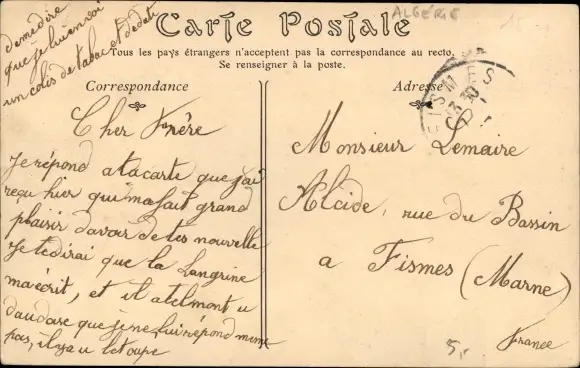 de me dire
que je lui envoi
un colis de tabac et dedat
ALGÉRIE
Carte Postale
Tous les pays étrangers n'acceptent pas la correspondance au recto.
Se renseigner à la poste.
Correspondance
Adresse
Cher Frère
Je répond a ta carte que j'ai
reçu hier qui ma fait grand
plaisir d'avoir de tes nouvelle
Je te dirai que la Langrine
ma écrit, et il a telmont u
d'audase que je ne lui répond meme
pas, il y a u
Monsieur Lemaire
Alcide, rue du Bassin
a Fismes (Marne)
France
5,-